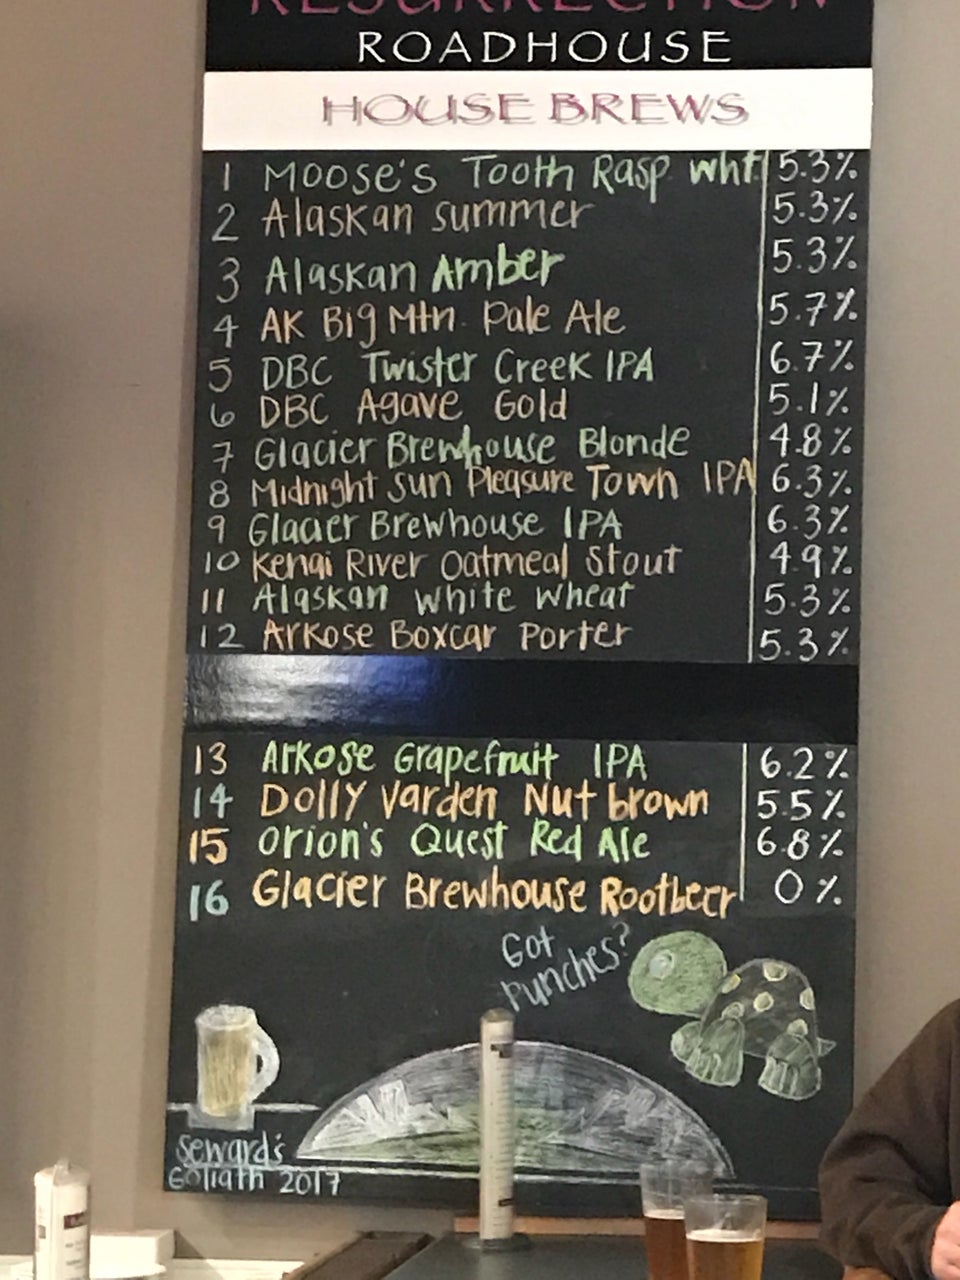 RESURRECTION
ROADHOUSE
HOUSE BREWS
1 Moose's Tooth Rasp wht 5.3%
2 Alaskan summer 5.3%
3 Alaskan Amber 5.3%
4 AK Big Mtn. Pale Ale 5.7%
5 DBC Twister Creek IPA 6.7%
6 DBC Agave Gold 5.1%
7 Glacier Brewhouse Blonde 4.8%
8 Midnight Sun Pleasure Town IPA 6.3%
9 Glacier Brewhouse IPA 6.3%
10 Kenai River Oatmeal Stout 4.9%
11 Alaskan White Wheat 5.3%
12 Arkose Boxcar Porter 5.3%
13 Arkose Grapefruit IPA 6.2%
14 Dolly Varden Nut brown 5.5%
15 Orion's Quest Red Ale 6.8%
16 Glacier Brewhouse Rootbeer 0%
Got
Punches?
Seward's
Goliath 2017